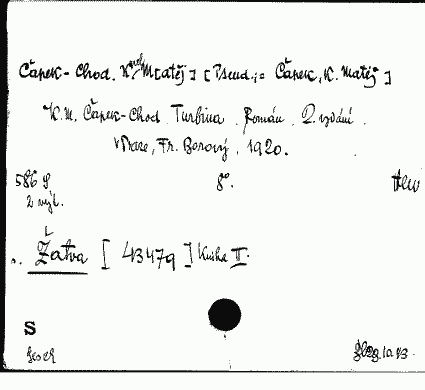 Čapek-Chod. K. M[atěj] [Pseud.,= Čapek, K. Matěj]
K.M. Čapek-Chod. Turbina. Román. 2. vydání.
V Praze, Fr. Borový, 1920.
586 S 8°.
2 výt.
Žatva [43479] Kniha II.
S